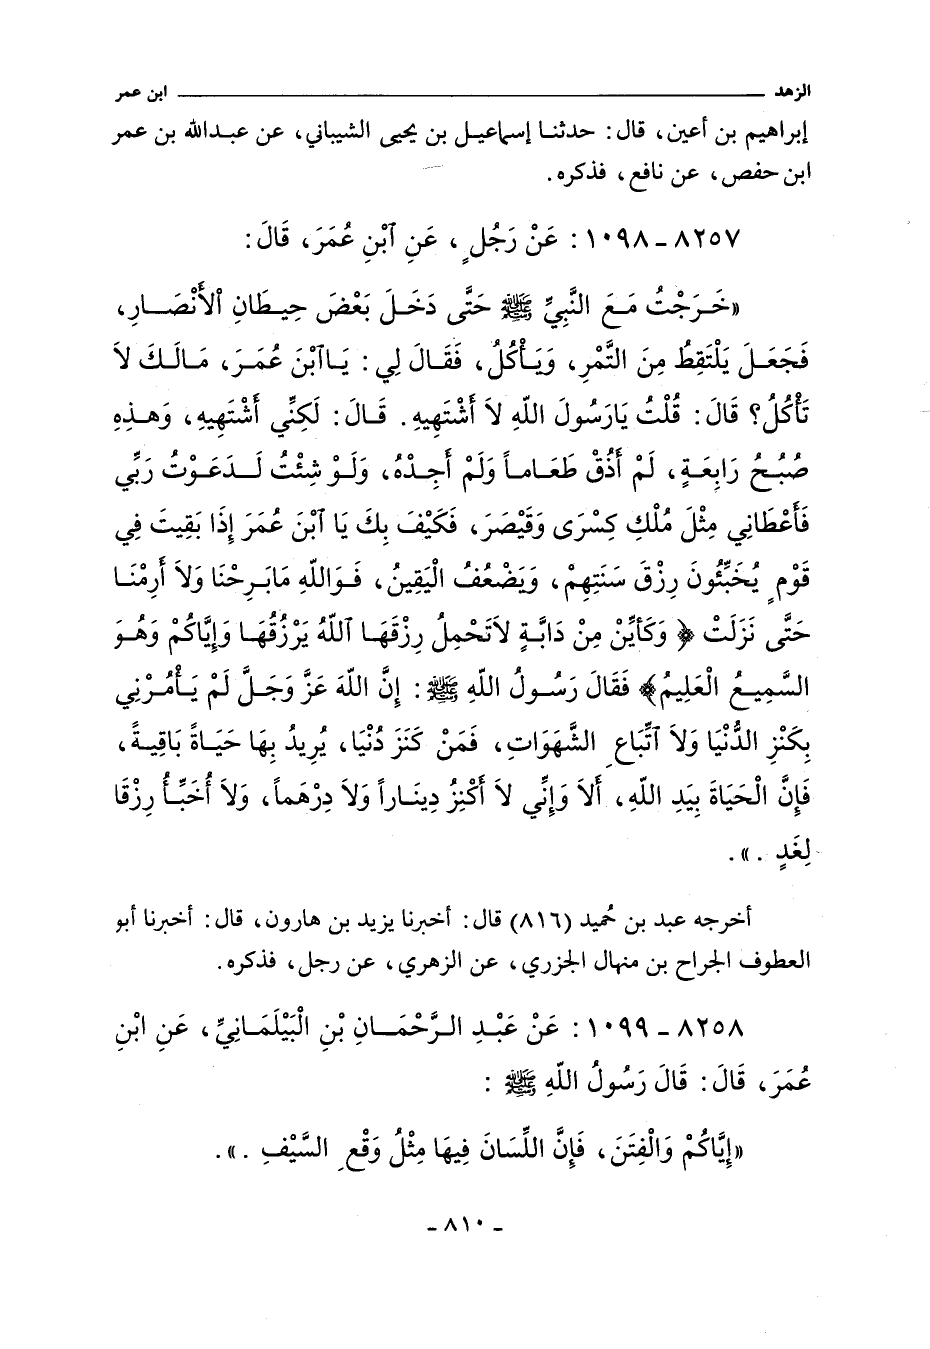 الزهد ــــــــــ ابن عمر
إبراهيم بن أعين، قال: حدثنا إسماعيل بن يحيى الشيباني، عن عبدالله بن عمر
ابن حفص، عن نافع، فذكره.
٨٢٥٧ - ١٠٩٨: عَنْ رَجُلٍ، عَنِ ٱبْنِ عُمَرَ، قَالَ:
«خَرَجْتُ مَعَ النَّبِيِّ ﷺ حَتَّى دَخَلَ بَعْضَ حِيطَانِ ٱلأَنْصَارِ،
فَجَعَلَ يَلْتَقِطُ مِنَ التَّمْرِ، وَيَأْكُلُ، فَقَالَ لِي: يَاٱبْنَ عُمَرَ، مَالَكَ لاَ
تَأْكُلُ؟ قَالَ: قُلْتُ يَارَسُولَ اللّهِ لاَ أَشْتَهِيهِ. قَالَ: لَكِنِّي أَشْتَهِيهِ، وَهَذِهِ
صُبْحُ رَابِعَةٍ، لَمْ أَذُقْ طَعَاماً وَلَمْ أَجِدْهُ، وَلَوْ شِئْتُ لَدَعَوْتُ رَبِّي
فَأَعْطَانِي مِثْلَ مُلْكِ كِسْرَى وَقَيْصَرَ، فَكَيْفَ بِكَ يَا ٱبْنَ عُمَرَ إِذَا بَقِيتَ فِي
قَوْمٍ يُخَبِّئُونَ رِزْقَ سَنَتِهِمْ، وَيَضْعُفُ الْيَقِينُ، فَوَاللّهِ مَابَرِحْنَا وَلاَ أَرِمْنَا
حَتَّى نَزَلَتْ ﴿ وَكَأَيِّنْ مِنْ دَابَّةٍ لاَتَحْمِلُ رِزْقَهَا ٱللّهُ يَرْزُقُهَا وَإِيَّاكُمْ وَهُوَ
السَّمِيعُ الْعَلِيمُ﴾ فَقَالَ رَسُولُ اللّهِ ﷺ: إِنَّ اللّهَ عَزَّ وَجَلَّ لَمْ يَأْمُرْنِي
بِكَنْزِ الدُّنْيَا وَلاَ ٱتِّبَاعِ الشَّهَوَاتِ، فَمَنْ كَنَزَ دُنْيَا، يُرِيدُ بِهَا حَيَاةً بَاقِيةً،
فَإِنَّ الْحَيَاةَ بِيَدِ اللّهِ، أَلاَ وَإِنِّي لاَ أَكْنِزُ دِينَاراً وَلاَ دِرْهَماً، وَلاَ أُخَبِّأُ رِزْقاً
لِغَدٍ .».
أخرجه عبد بن حُميد (٨١٦) قال: أخبرنا يزيد بن هارون، قال: أخبرنا أبو
العطوف الجراح بن منهال الجزري، عن الزهري، عن رجل، فذكره.
٨٢٥٨ - ١٠٩٩: عَنْ عَبْدِ الرَّحْمَانِ بْنِ الْبَيْلَمَانِيِّ، عَنِ ابْنِ
عُمَرَ، قَالَ: قَالَ رَسُولُ اللّهِ ﷺ:
«إِيَّاكُمْ وَالْفِتَنَ، فَإِنَّ اللِّسَانَ فِيهَا مِثْلُ وَقْعِ السَّيْفِ .».
- ٨١٠ -